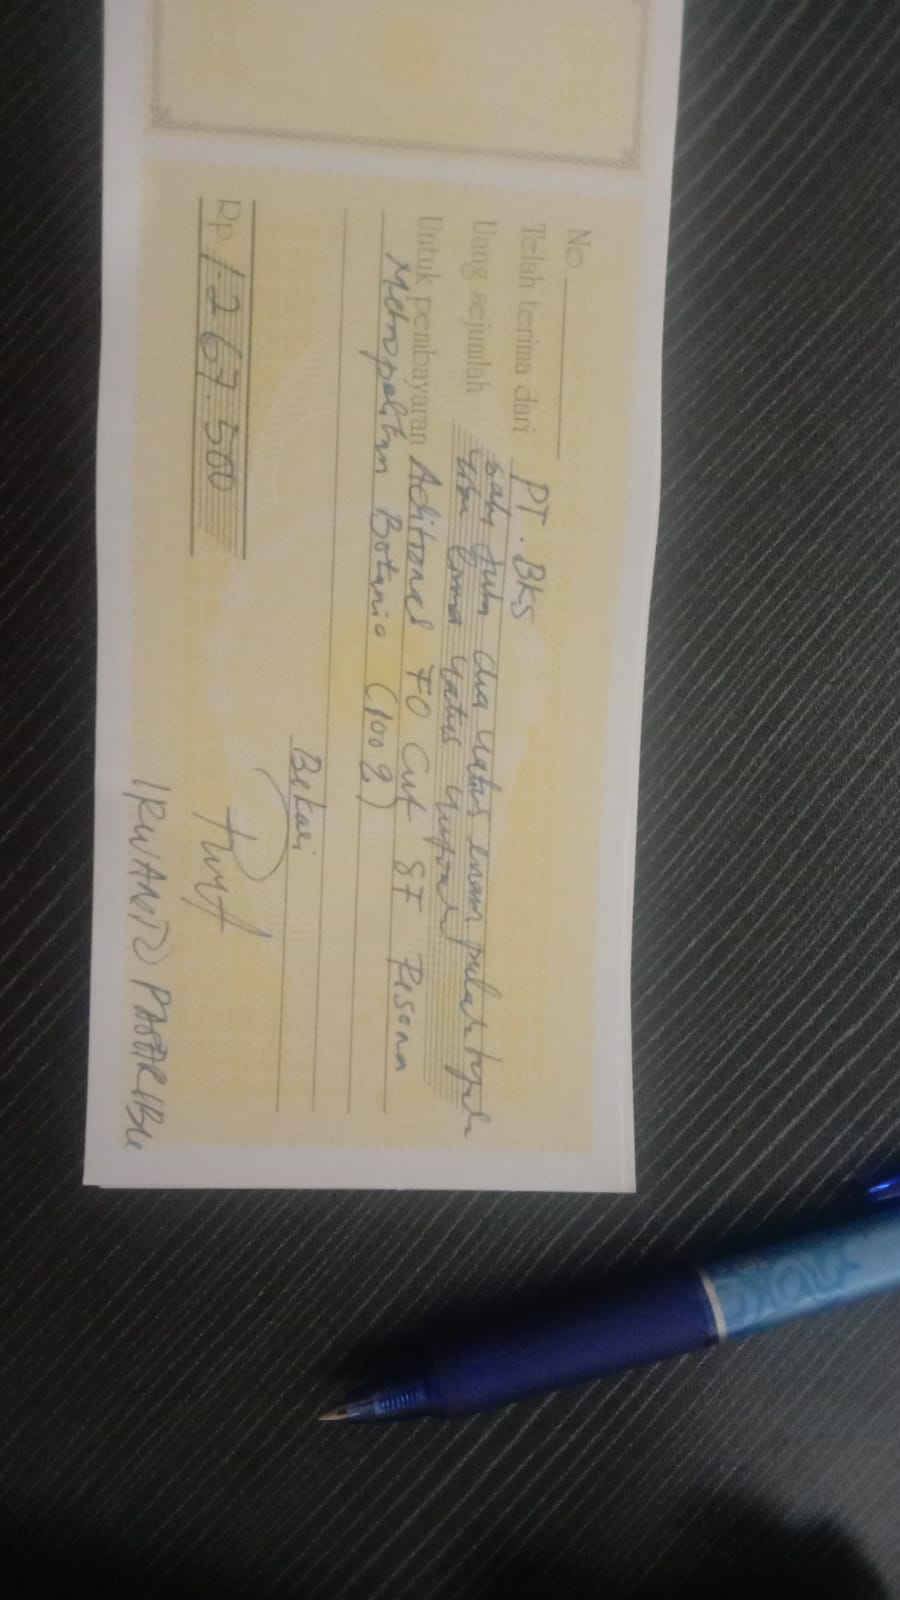 No.
Telah terima dari PT. BKS
Uang sejumlah satu juta dua ratus enam puluh tujuh
ribu lima ratus rupiah
Untuk pembayaran Aditional FO Cut ST Pesona
Metropolitan Botania (100%)
Bekasi
Rp. 1267.500
IRWANTO PASARIBU